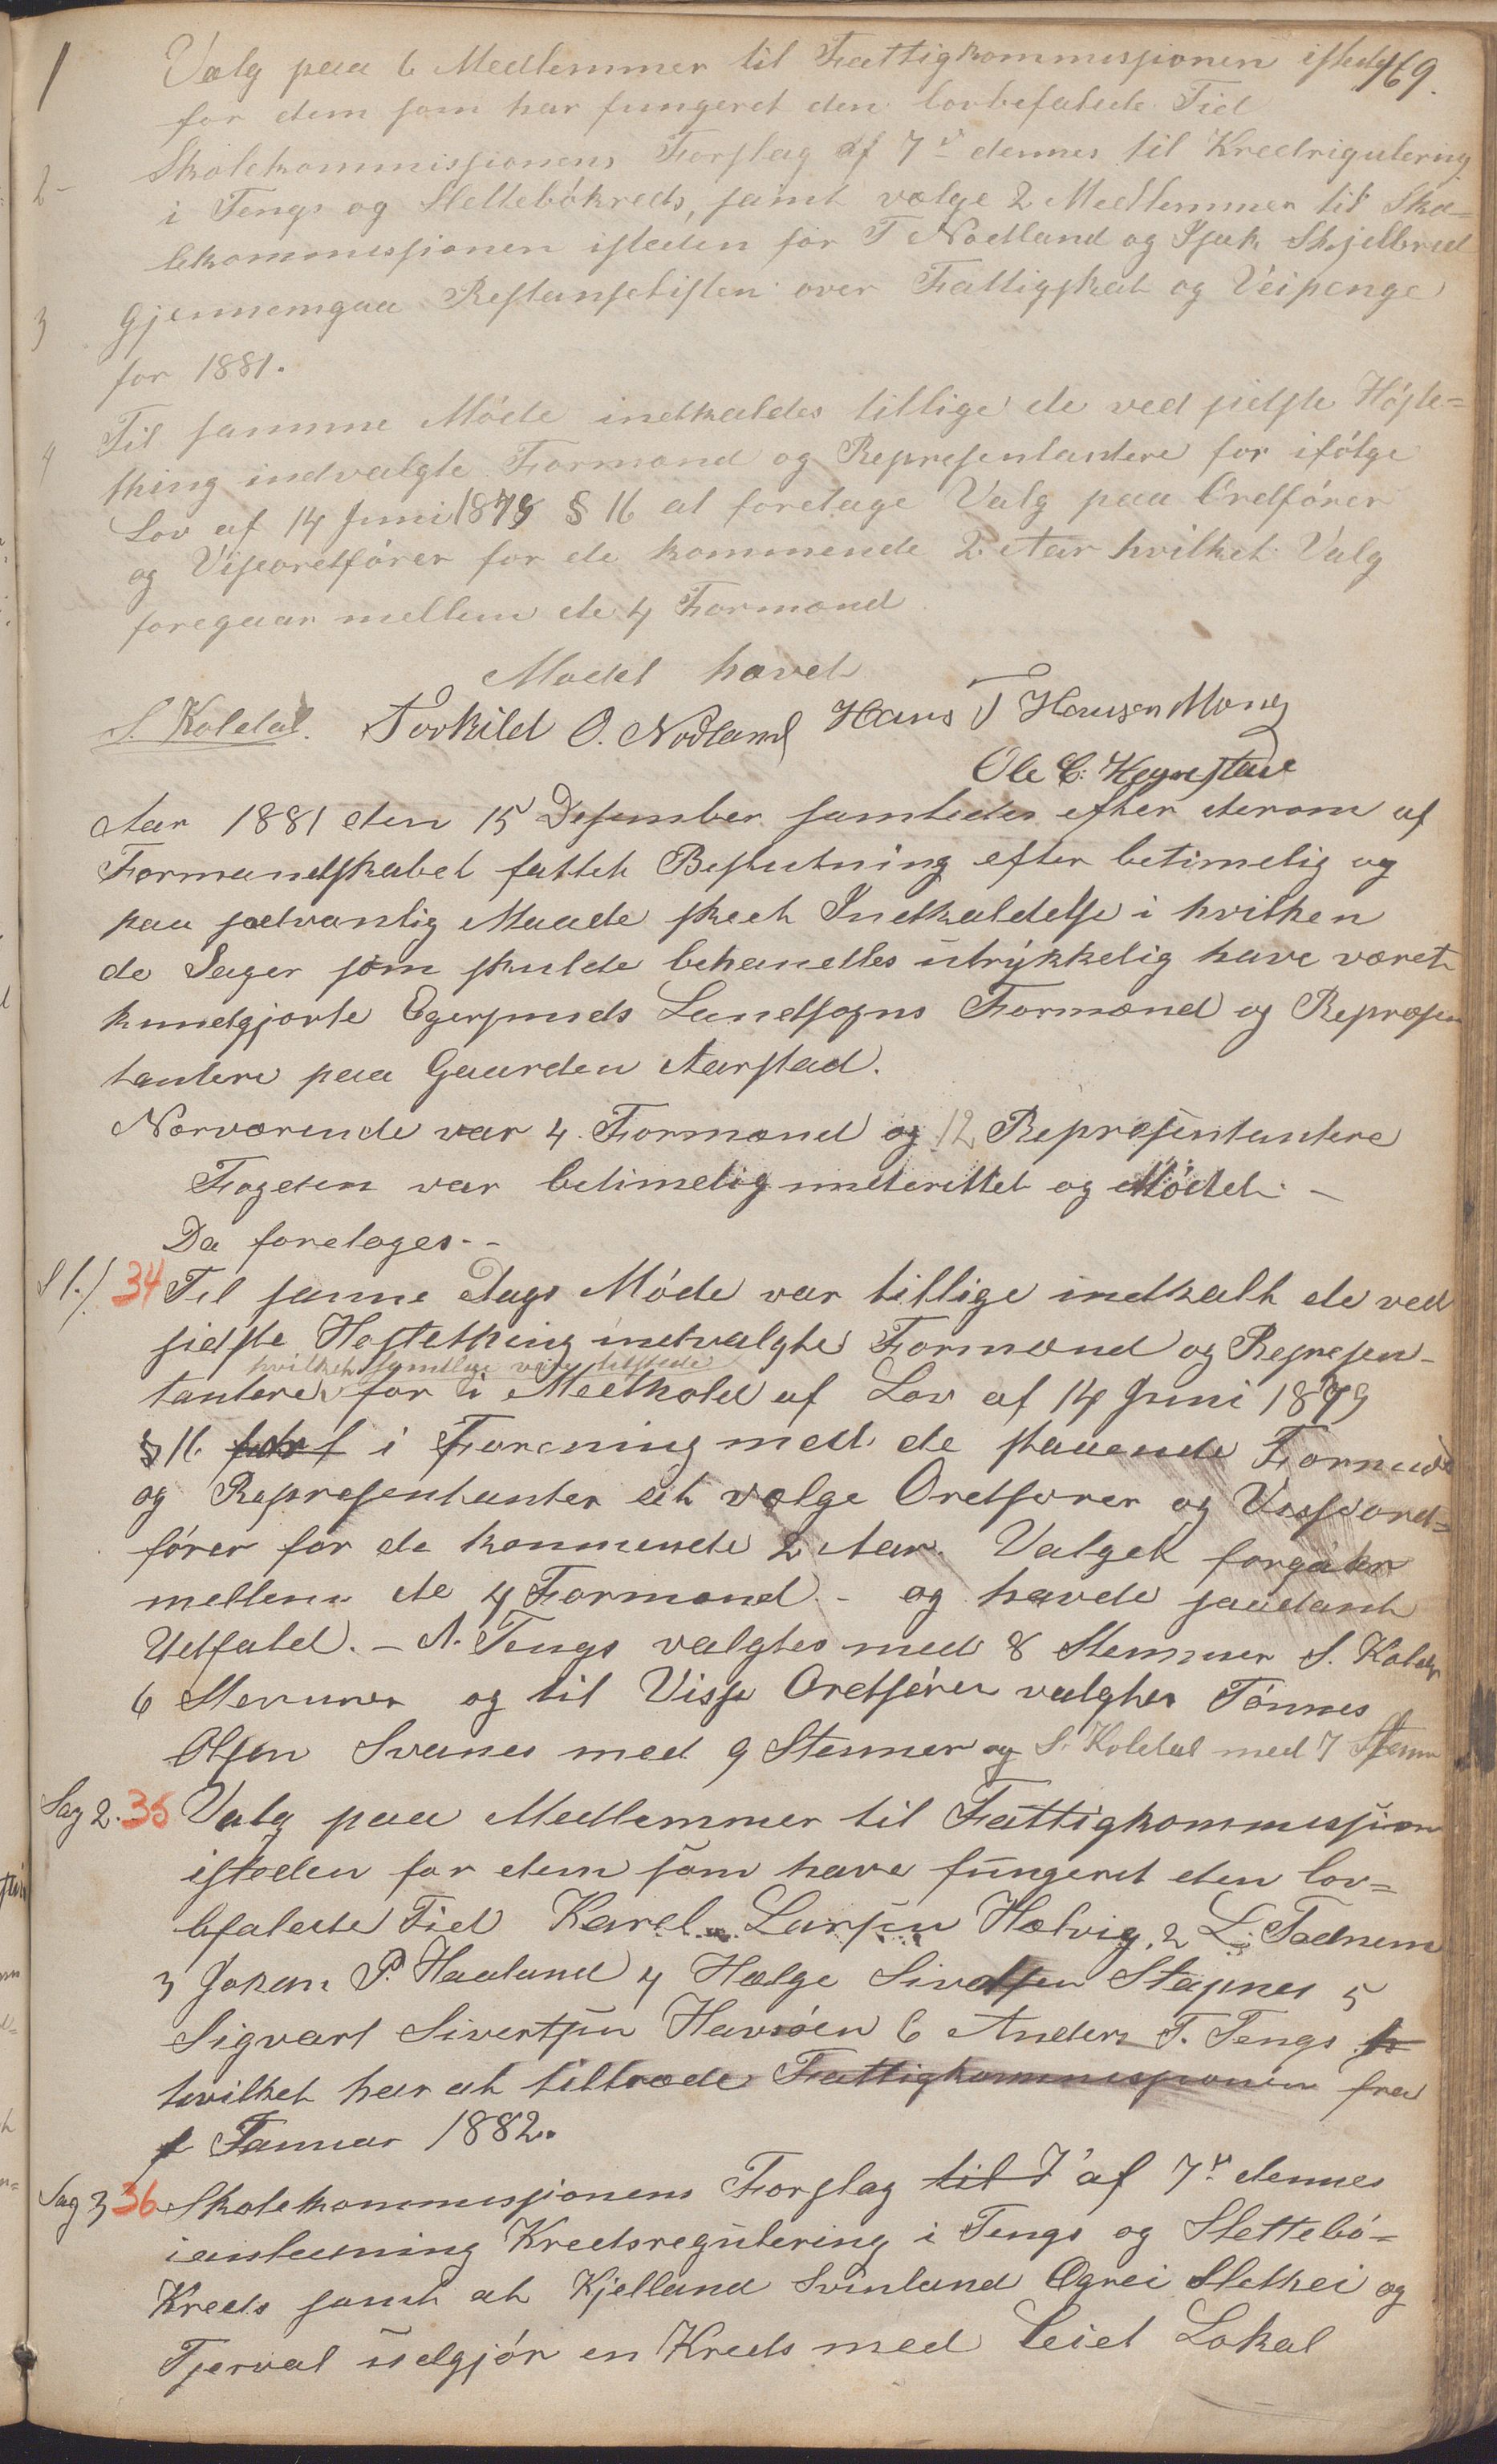 169.
1 Valg paa 6 Medlemmer til Fattigkommissionen isteden
for dem som har fungeret den lovbefalede Tid
2 Skolekommissionens Forslag af 7de dennes til Kredsregulering
i Tengs og Slettebökreds, samt vælge 2 Medlemmer til Sko=
lekommissionen isteden for T Nodland og Isak Skjelbred
3 Gjennemgaa Restanselisten over Fattigskat og Veipenge
for 1881.
4 Til samme Möde indkaldes tillige de ved sidste Höste=
thing indvalgte Formænd og Representantere for ifölge
Lov af 14 Juni 1879 § 16 at foretage Valg paa Ordförer
og Viseordförer for de kommende 2 Aar hvilket Valg
foregaar mellem de 4 Formænd
Mödet hævet
S. Koldal. Torkild O. Nodland Hans T Hansen Mong
Ole C. Hegrestad
Aar 1881 den 15 Desember samledes efter derom af
Formandskabet fattet Beslutning efter betimelig og
paa sædvanlig Maade skeet Indkaldelse i hvilken
de Sager som skulde behandles utrykkelig have været
kundgjorte Egersunds Landsogns Formænd og Repræsen
tantere paa Gaarden Aarstad.
Nærværende var 4 Formænd og 12 Repræsentantere
Fogeden var betimelig underettet og Mödet. -
Da foretoges--
S 1./. 34 Til samme Dags Möde var tillige indkalt de ved
sidste Hostething indvalgte Formænd og Represen-
hvilket samtlige vare tilstede
tantere for i Medhold af Lov af 14 Juni 1879
§ 16 i Forening med de staaende Formænd
og Representanter at vælge Ordforer og Viseord=
förer for de kommende 2 Aar. Valget forgaar
mellem de 4 Formænd - og havde saadant
Udfald. - A. Tengs valgtes med 8 Stemmer S. Koldal
6 Stemmer og til Vise Ordförer valgtes Tönnes
Olsen Svanes med 9 Stemmer og S. Koldal med 7 Stemm
Sag 2. 35 Valg paa Medlemmer til Fattigkommissionen
isteden for dem som have fungeret den lov=
befalede Tid Karel Larsen Hælvig, 2 L. Tadnem
3 Johan P. Haaland 4 Hælge Sivertsen Stapnes 5
Sigvart Sivertsen Havsöen 6 Anders T. Tengs h
hvilket har at tiltræde Fattigkommissionen fra
1 Januar 1882.
Sag 3 36 Skolekommissionens Forslag til 7 af 7de dennes
i anledning Kredsregulering i Tengs og Slettebö=
Kreds samt at Kjelland Svinland Ogrei Slethei og
Tjerval udgjör en Kreds med Leiet Lokal